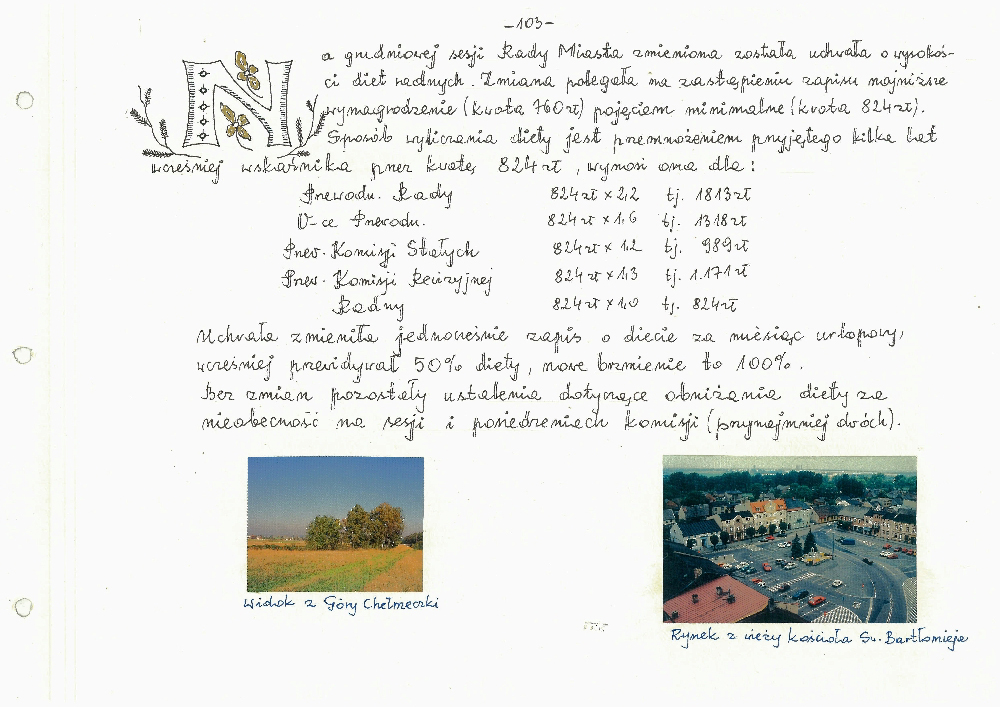 -103-
Na grudniowej sesji Rady Miasta zmieniona została uchwała o wysokoś-
ci diet radnych. Zmiana polegała na zastąpieniu zapisu najniższe
wynagrodzenie (kwota 760zł) pojęciem minimalne (kwota 824zł).
Sposób wyliczania diety jest przemnożeniem przyjętego kilka lat
wcześniej wskaźnika przez kwotę 824zł, wynosi ona dla:
Przewodn. Rady 824zł x 2,2 tj. 1813zł
V-ce Przewodn. 824zł x 1,6 tj. 1318zł
Przew. Komisji Stałych 824zł x 1,2 tj. 989zł
Przew. Komisji Rewizyjnej 824zł x 1,3 tj. 1.171zł
Radny 824zł x 1,0 tj. 824zł
Uchwała zmieniła jednocześnie zapis o diecie za miesiąc urlopowy,
wcześniej przewidywał 50% diety, nowe brzmienie to 100%.
Bez zmian pozostały ustalenia dotyczące obniżania diety za
nieobecność na sesji i posiedzeniach komisji (przynajmniej dwóch).
Widok z Góry Chełmeczki
Rynek z wieży kościoła Św. Bartłomieja